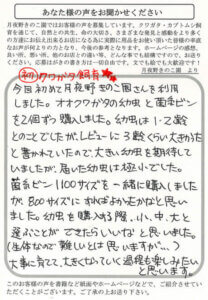 あなた様の声をお聞かせください
月夜野きのこ園ではお客様の声を募集しています。クワガタ・カブトムシ飼
育を通じて、自然との共生、命の大切さ、さまざまな発見と感動をより多く
の方達にお伝え出来る活動になる為に実際に商品をお使い頂いた皆様の率直
なお声が何よりの力となり、今後の参考となります。ホームページの感想、
良い点、悪い点、他のお店との違いを、どんな事でも結構ですのでお書き
ください。応募はがきの書き方は一切自由です。文でも絵でも大歓迎です!
月夜野きのこ園 より
初クワガタ飼育
今回初めて月夜野きのこ園さんを利用
しました。オオクワガタの幼虫と菌糸ビン
を2個ずつ購入しました。幼虫は1・2齢
とのことでしたが、レビューに3齢くらい大きめだ
と書かれていたので大きい幼虫を期待して
いましたが、届いた幼虫は極小でした。
菌糸ビン1100サイズを一緒に購入しました
が、800サイズにすればよかったかなと思い
ました。幼虫を購入する際、小、中、大と
選ぶことができたらいいなと思いました。
(生体なので難しいとは思いますが…)
大事に育てて、大きくなっていく過程を楽しみたい
と思います。
このお客様の声を書籍など紙面やホームページなどで、ご紹介させてい
ただくことがございます。ご了承の上お送り下さい。